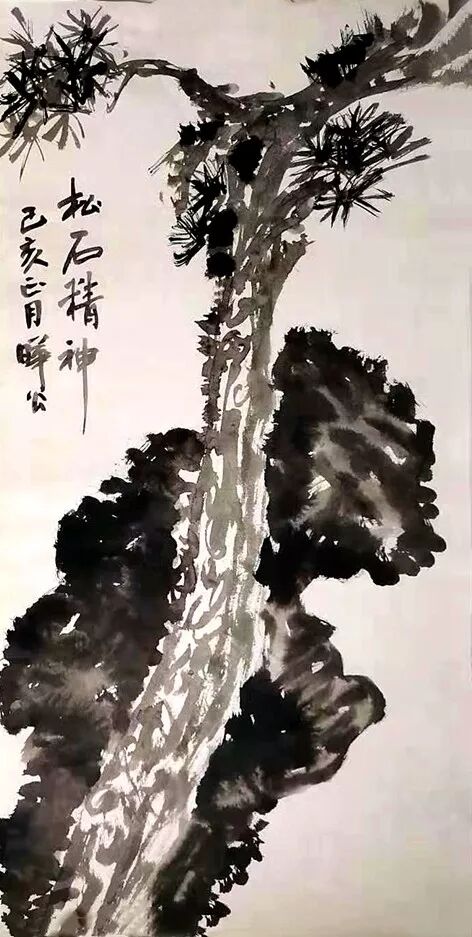 松石精神
己亥正月暉公